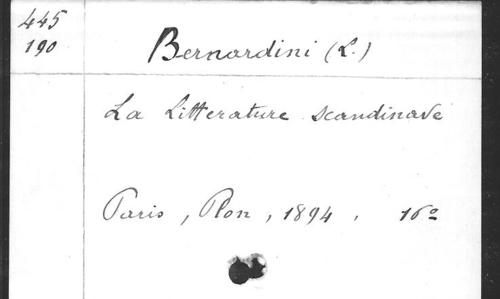 445
190
Bernardini (L.)
La Litterature scandinave
Paris, Plon, 1894. 16º